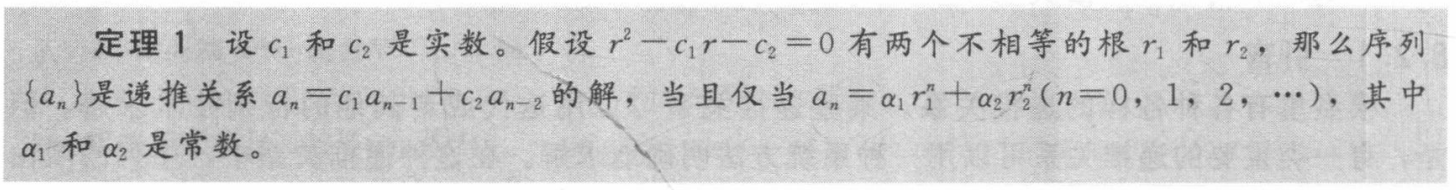 定理 1 设 c₁ 和 c₂ 是实数。假设 r²－c₁r－c₂＝0 有两个不相等的根 r₁ 和 r₂，那么序列
{aₙ}是递推关系 aₙ＝c₁aₙ₋₁＋c₂aₙ₋₂ 的解，当且仅当 aₙ＝α₁r₁ⁿ＋α₂r₂ⁿ(n＝0，1，2，…)，其中
α₁ 和 α₂ 是常数。